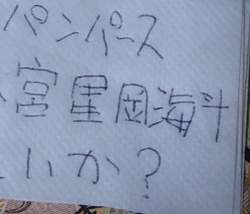 パンパース
宮星岡海斗
いか？